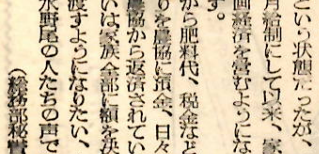 という状態だったが、
月給制にして以来、家
画経済を営むようにな
す。
から肥料代、税金など
りを農協に預金、日々
農協から返済されてい
いは家族全部に額を決
渡すようになりたい、
水野尾の人たちの声で
（総務部秘書